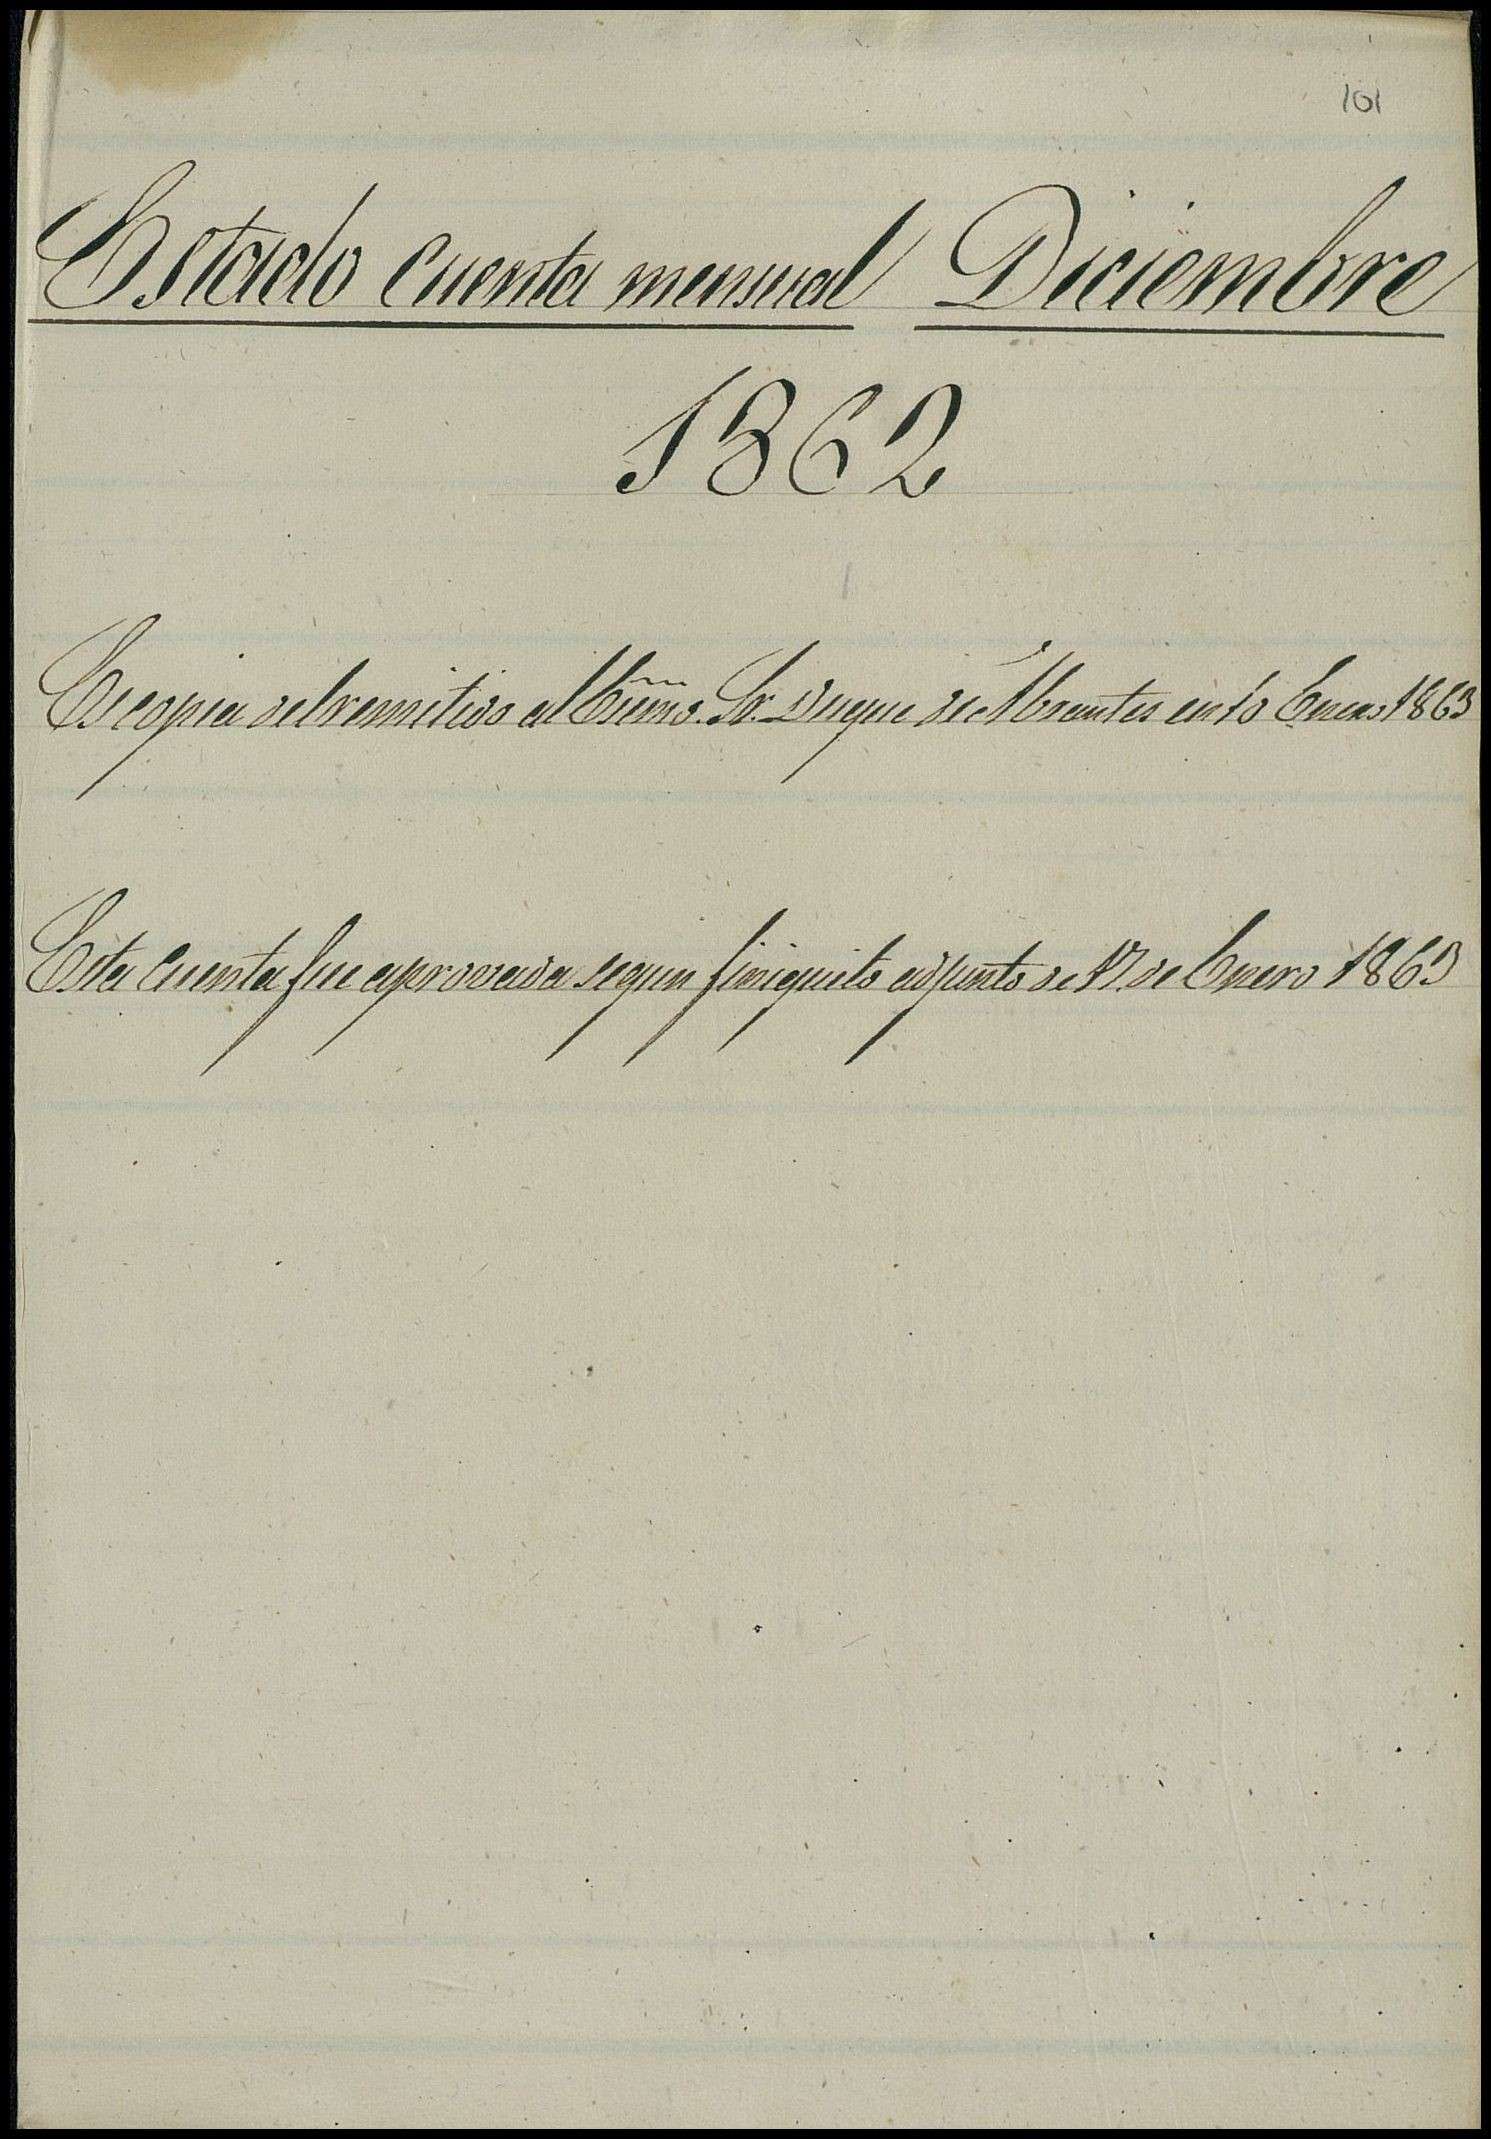 101
Estado Cuenta mensual Diciembre
1862
Es copia del remitido al Excmo. Sr. Duque de Abrantes en 10 Enero 1863
Esta Cuenta fue aprovada segun finiquito adjunto de 17 de Enero 1863